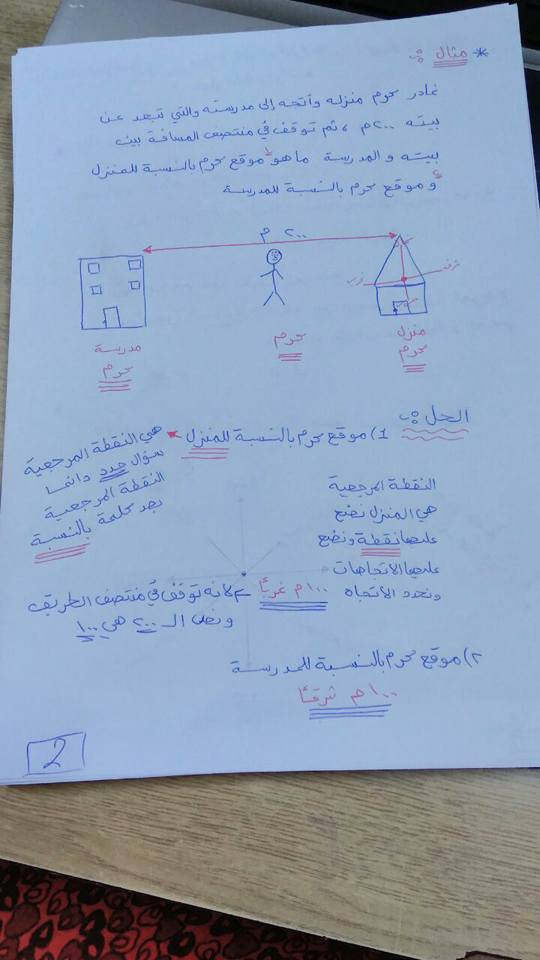 * مثال :-
غادر محرم منزله وأتجه إلى مدرسته والتي تبعد عن
بيته ٢٠٠ م ، ثم توقف في منتصف المسافة بين
بيته و المدرسة ما هو موقع محرم بالنسبة للمنزل
أو موقع محرم بالنسبة للمدرسة
٢٠٠ م
شرق
غرب
منزل
محرم
محرم
مدرسة
محرم
الحل :-
1) موقع محرم بالنسبة للمنزل
هي النقطة المرجعية
سؤال حدد دائما
النقطة المرجعية
بعد كلمة بالنسبة
النقطة المرجعية
هي المنزل نضع
عليها نقطة ونضع
عليها الاتجاهات
ونحدد الاتجاه
١٠٠ م غربًا
لانه توقف في منتصف الطريق
ونصف الـ ٢٠٠ هي ١٠٠
٢) موقع محرم بالنسبة للمدرسة
١٠٠ م شرقًا
2